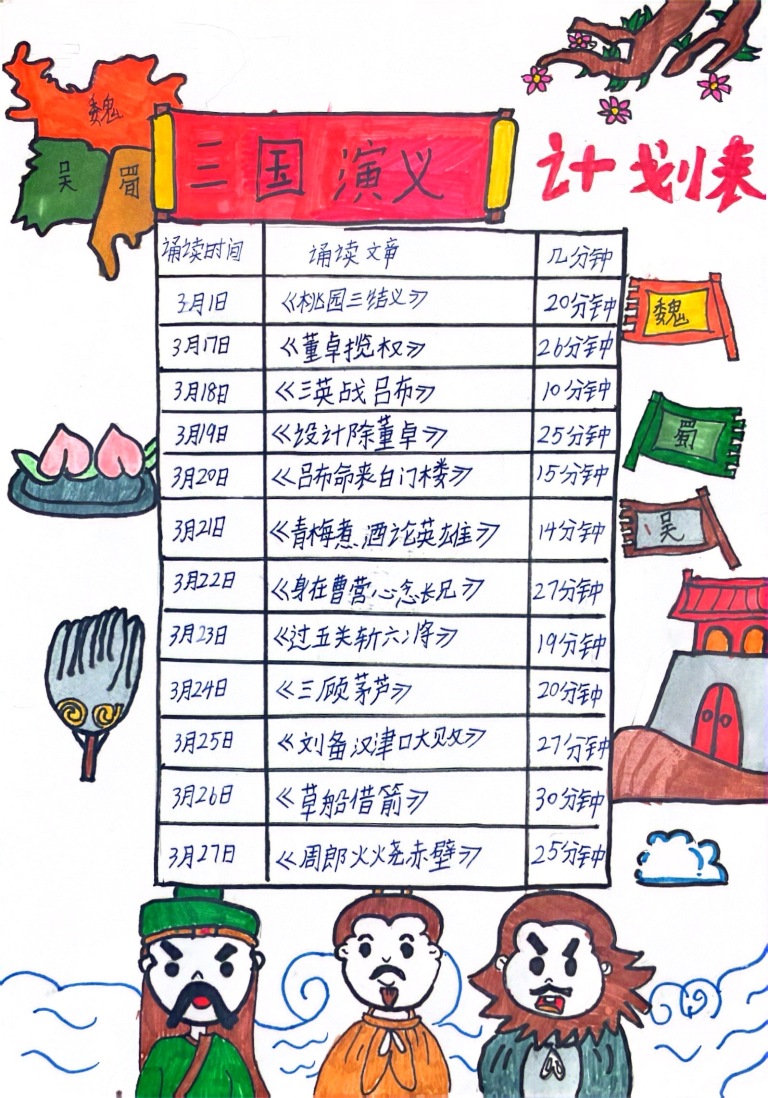 魏
吴
蜀
三国演义
计划表
诵读时间 诵读文章 几分钟
3月1日 《桃园三结义》 20分钟
魏
3月17日 《董卓揽权》 26分钟
3月18日 《三英战吕布》 10分钟
3月19日 《设计除董卓》 25分钟
蜀
3月20日 《吕布命丧白门楼》 15分钟
3月21日 《青梅煮酒论英雄》 14分钟
吴
3月22日 《身在曹营心念长兄》 27分钟
3月23日 《过五关斩六将》 19分钟
3月24日 《三顾茅芦》 20分钟
3月25日 《刘备汉津口大败》 27分钟
3月26日 《草船借箭》 30分钟
3月27日 《周郎火火烧赤壁》 25分钟